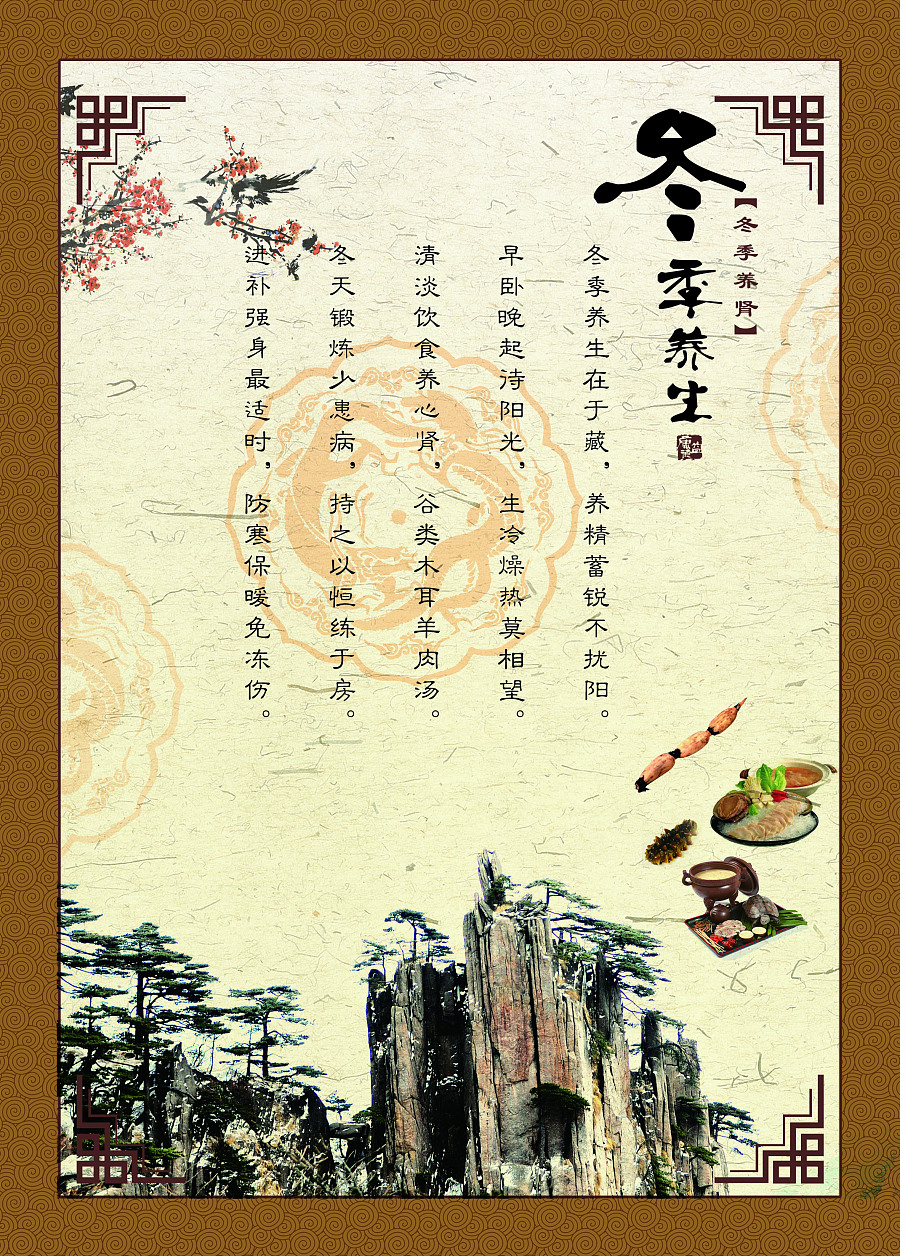 冬季养生
【冬季养肾】
冬季养生在于藏，养精蓄锐不扰阳。
早卧晚起待阳光，生冷燥热莫相望。
清淡饮食养心肾，谷类木耳羊肉汤。
冬天锻炼少患病，持之以恒练于房。
进补强身最适时，防寒保暖免冻伤。